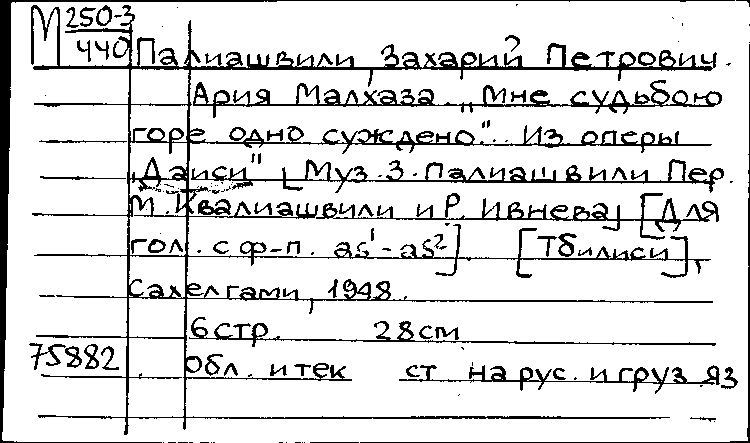 М 250-3
440 Палиашвили, Захарий Петрович.
Ария Малхаза „Мне судьбою
горе одно суждено". Из оперы
„Даиси" [Муз. З. Палиашвили Пер.
М. Квалиашвили и Р. Ивнева] [Для
гол. с ф-п. as¹-as²]. [Тбилиси],
Сахелгами, 1948.
6 стр. 28 см
75882 Обл. и тек ст на рус. и груз яз